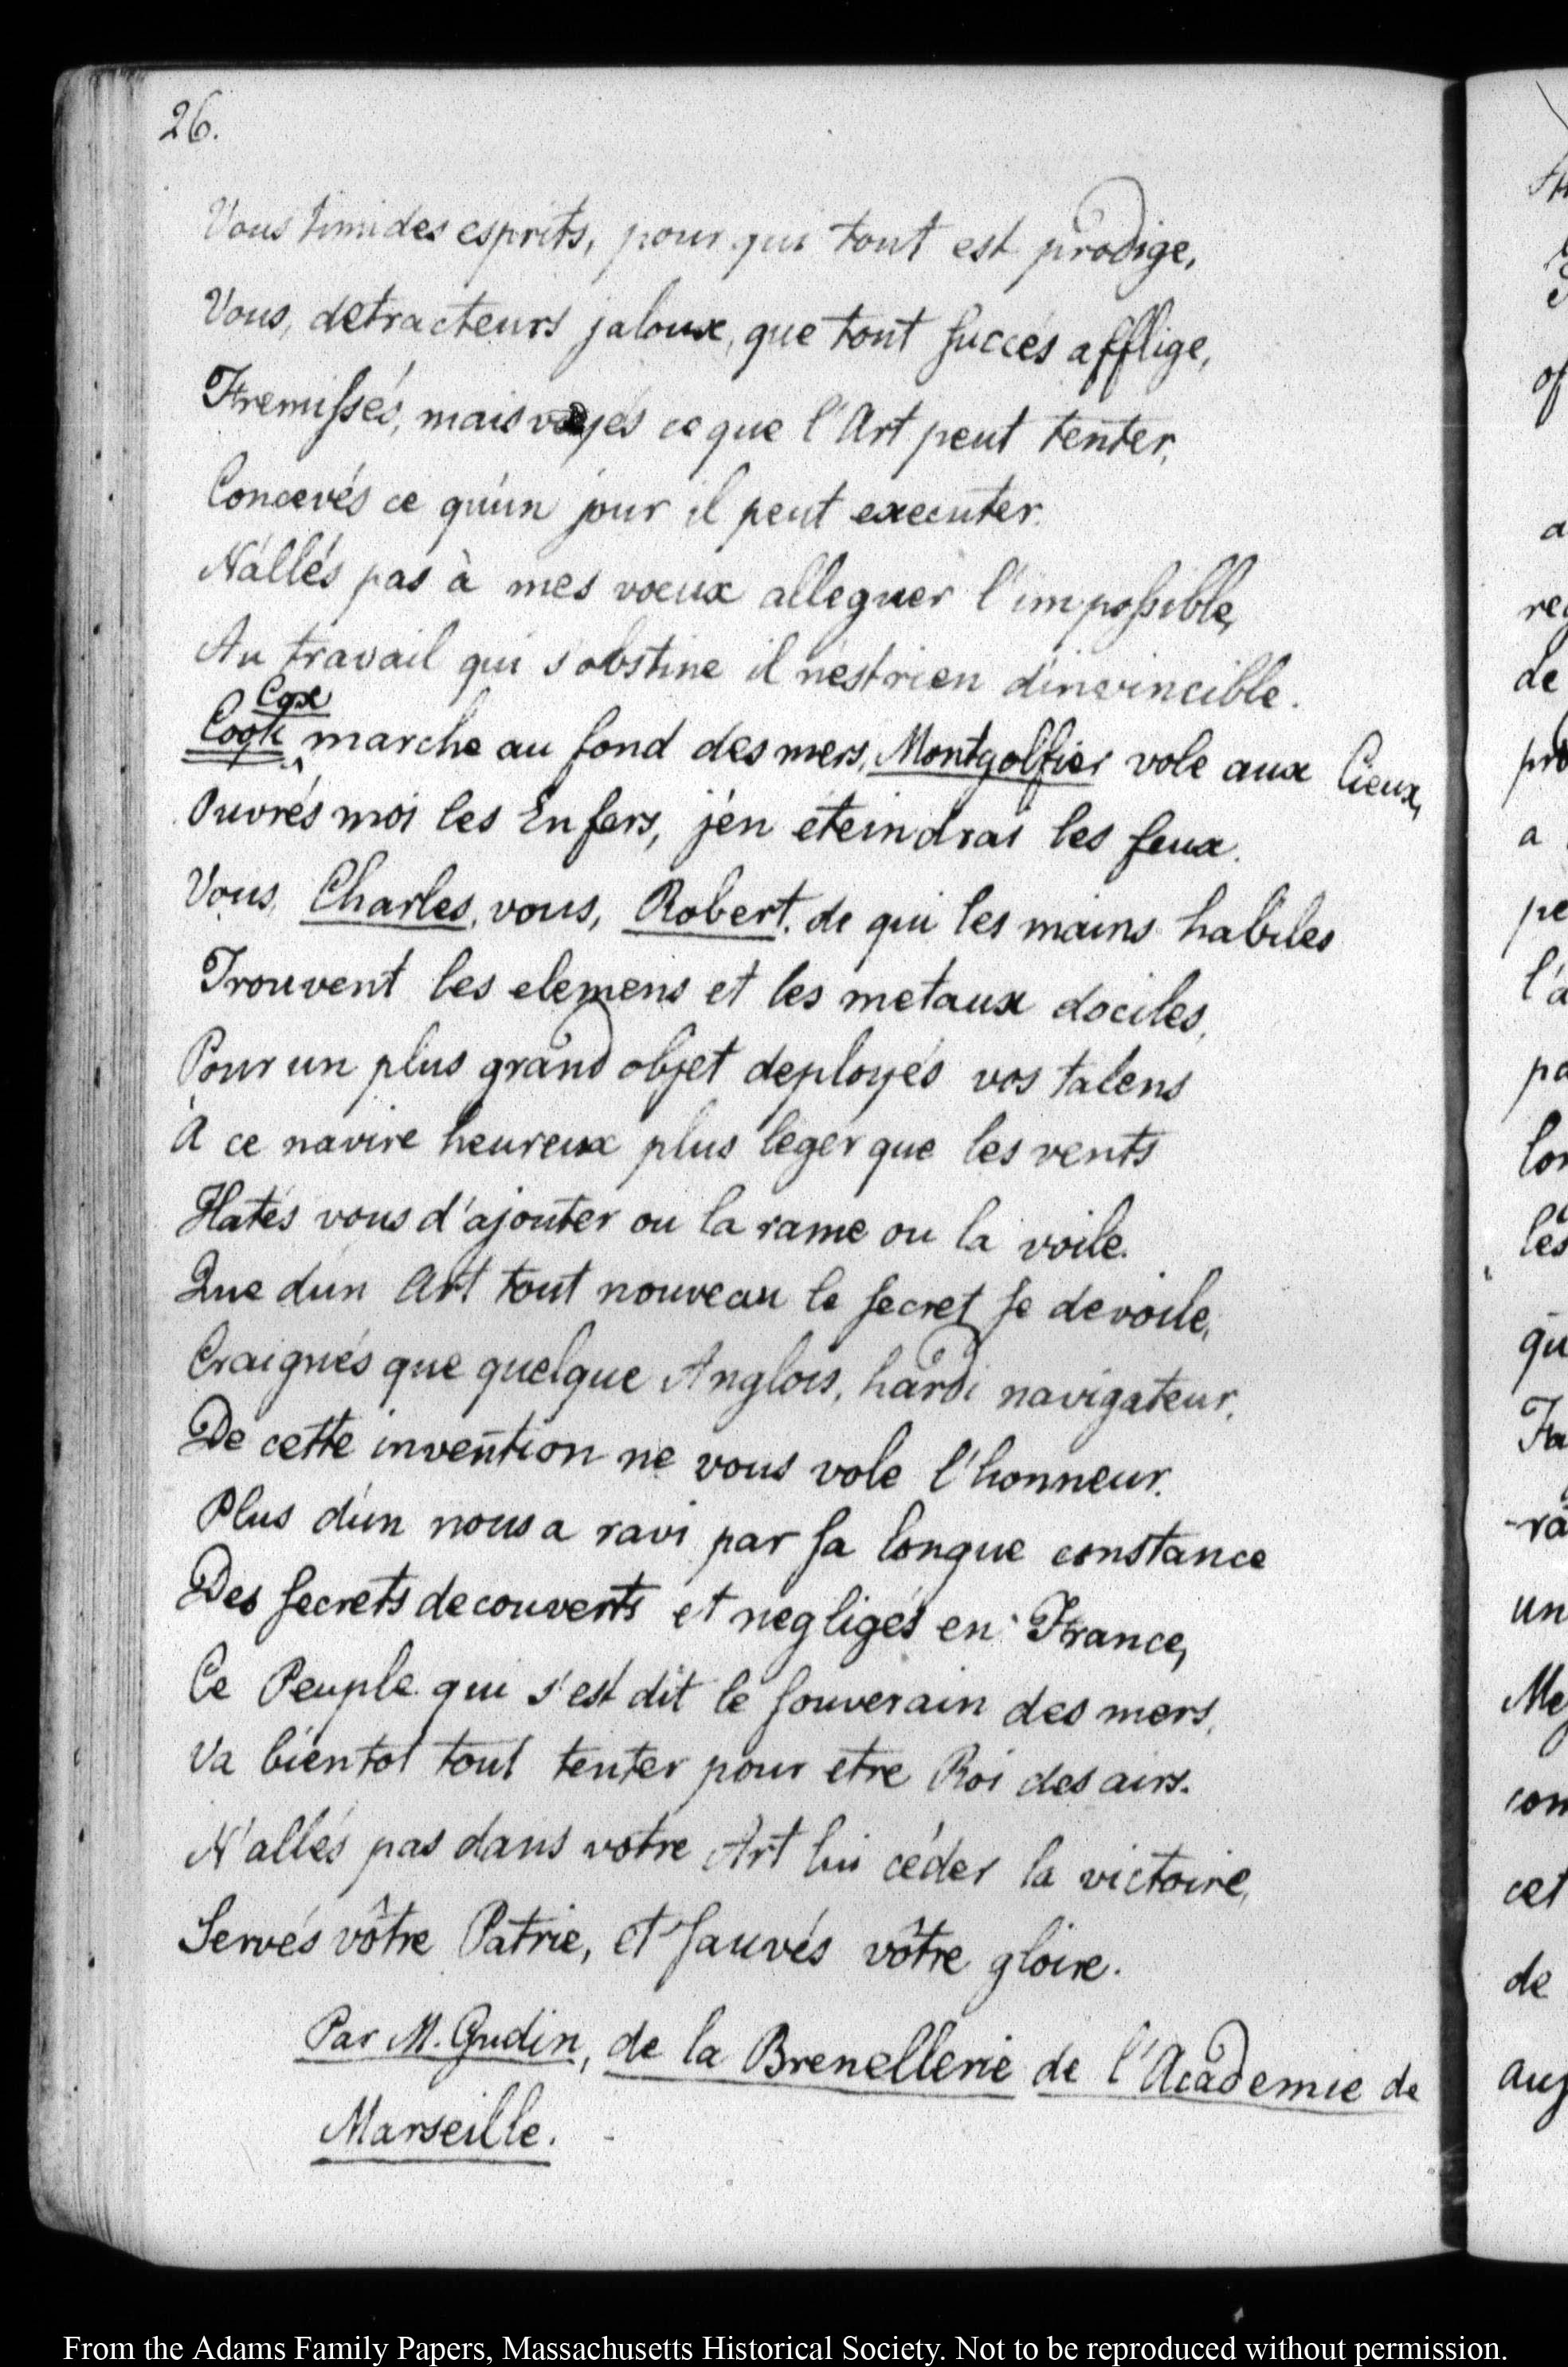 26.
Vous timides esprits, pour qui tout est prodige,
Vous, detracteurs jaloux, que tout succès afflige,
Fremissés, mais voyés ce que l'Art peut tenter,
Concevés ce qu'un jour il peut executer.
N'allés pas à mes voeux alleguer l'impossible,
Au travail qui s'obstine il n'est rien d'invincible.
Cox
Cook marche au fond des mers, Montgolfier vole aux Cieux,
Ouvrés moi les Enfers, j'en éteindrai les feux.
Vous, Charles, vous, Robert, de qui les mains habiles
Trouvent les elemens et les metaux dociles,
Pour un plus grand objet deployés vos talens
À ce navire heureux plus leger que les vents
Hatés vous d'ajouter ou la rame ou la voile.
Que d'un Art tout nouveau le secret se devoile,
Craignés que quelque Anglois, hardi navigateur,
De cette invention ne vous vole l'honneur.
Plus d'un nous a ravi par sa longue constance
Des secrets decouverts et negligés en France,
Ce Peuple qui s'est dit le souverain des mers,
Va bientot tout tenter pour etre Roi des airs.
N'allés pas dans votre Art lui céder la victoire,
Servés vôtre Patrie, et sauvés vôtre gloire.
Par M. Gudin, de la Brenellerie de l'Academie de
Marseille.
From the Adams Family Papers, Massachusetts Historical Society. Not to be reproduced without permission.